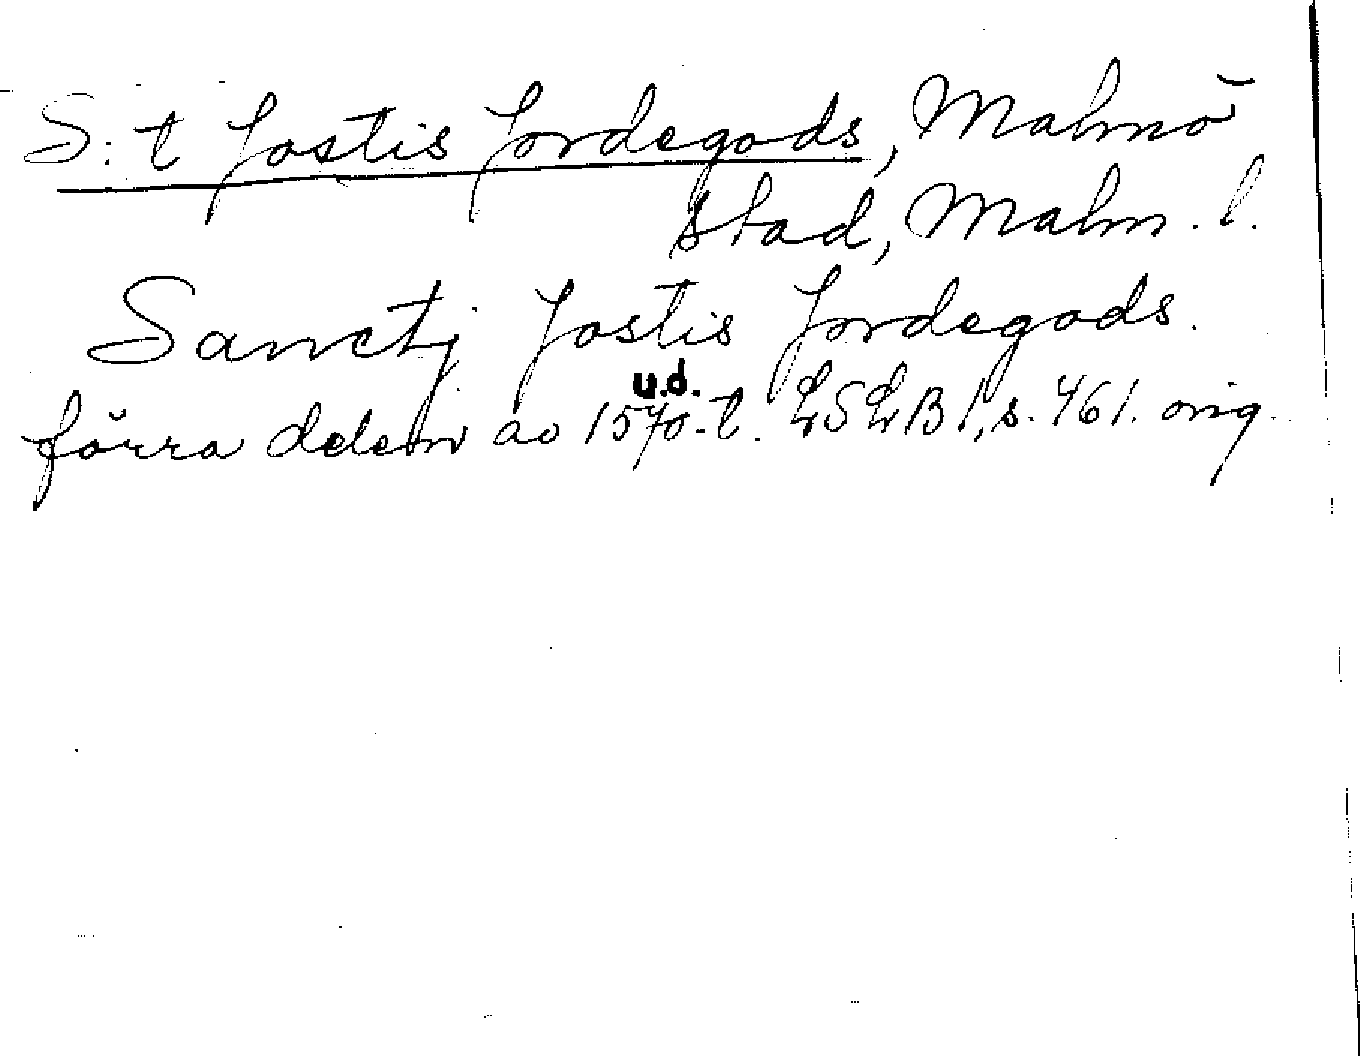 S:t Jostis Jordegods, Malmö
stad, Malm. l.
Sanctj Jostis Jordegods.
u.d.
förra delen av 1570-t. LSLB 1, s. 461. orig.